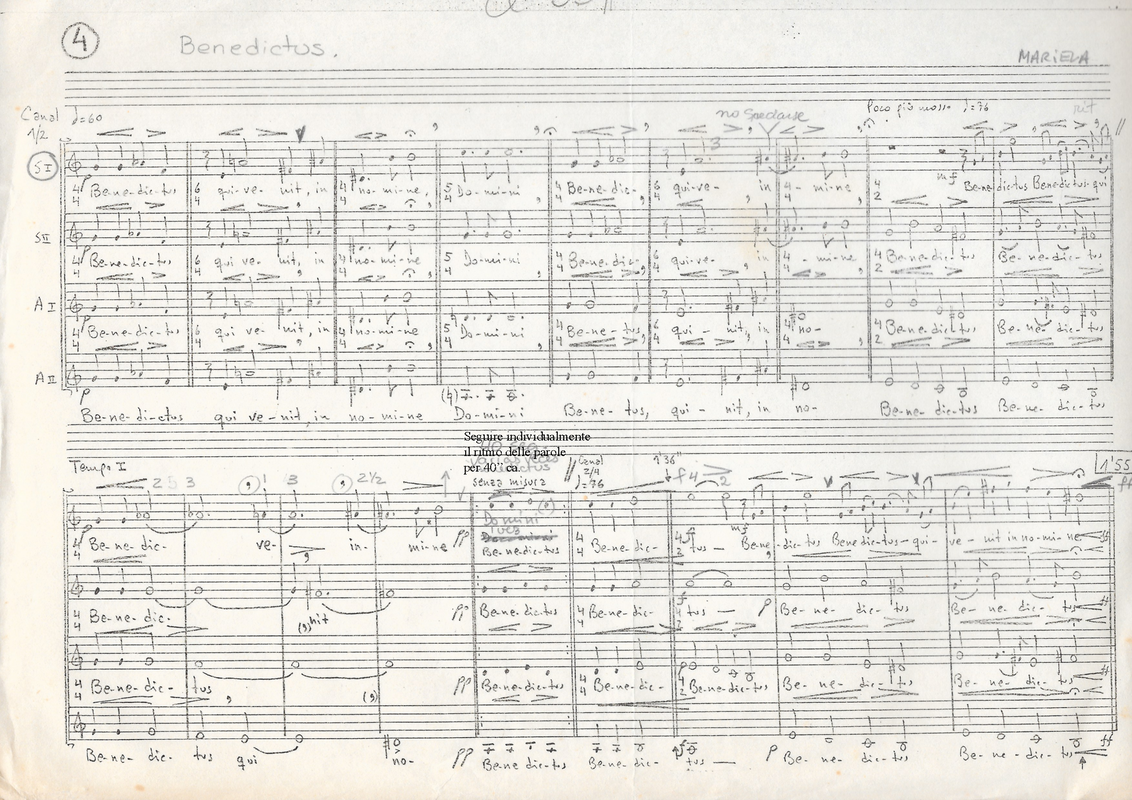 4
Benedictus.
MARiELA
Canal 1/2
♩=60
no Spedaise
Poco più mosso ♩=76
rit
3
S I
4 4 Be-ne-dic-tus 6 4 qui-ve- nit, in 4 4 no-mi-ne, 5 4 Do-mi-ni 4 4 Be-ne-dic- 6 4 qui-ve- in 4 4 - mi-ne 4 2 mf Be-ne-dictus Benedictus-qui
S II
p 4 4 Be-ne-dic-tus 6 4 qui ve- nit, in 4 4 no-mi-ne 5 4 Do-mi-ni 4 4 Be-ne-dic- 6 4 qui-ve- in 4 4 - mi-ne 4 2 Be-ne-dic-tus Be-ne-dic-tus
A I
p 4 4 Be-ne-dic-tus 6 4 qui ve- nit, in 4 4 no-mi-ne 5 4 Do-mi-ni 4 4 Be-ne-tus, 6 4 qui - nit, in 4 4 no- 4 2 Be-ne-dic-tus Be-ne-dic-tus
A II
p
Be-ne-di-ctus qui ve-nit, in no-mi-ne Do-mi-ni Be-ne-tus, qui-nit, in no- Be-ne-dic-tus Be-ne-dic-tus
Seguire individualmente
il ritmo delle parole
per 40" ca.
Tempo I
senza misura
Canal 2/4
♩=76
1'36"
1'55
2 5 3 1 3 2 1/2 f 4 2 ff
p 4 4 Be-ne-dic- ve- in- mi-ne pp Domini
Be-ne-dic-tus 4 4 Be-ne-dic- 4 2 tus — mf Bene-dic-tus Benedictus-qui-ve-nit in no-mi-ne
4 4 Be-ne-dic- nit pp Be-ne-dic-tus 4 4 Be-ne-dic- f 4 2 tus — p Be-ne-dic-tus Be-ne-dic-tus ff
4 4 Be-ne-dic-tus, pp Be-ne-dic-tus 4 4 Be-ne-dic- 4 2 Be-ne-dic-tus Be-ne-dic-tus Be-ne-dic-tus ff
Be-ne-dic-tus qui no- pp Be-ne-dic-tus Be-ne-dic- tus — p Be-ne-dic-tus Be-ne-dic-tus ff